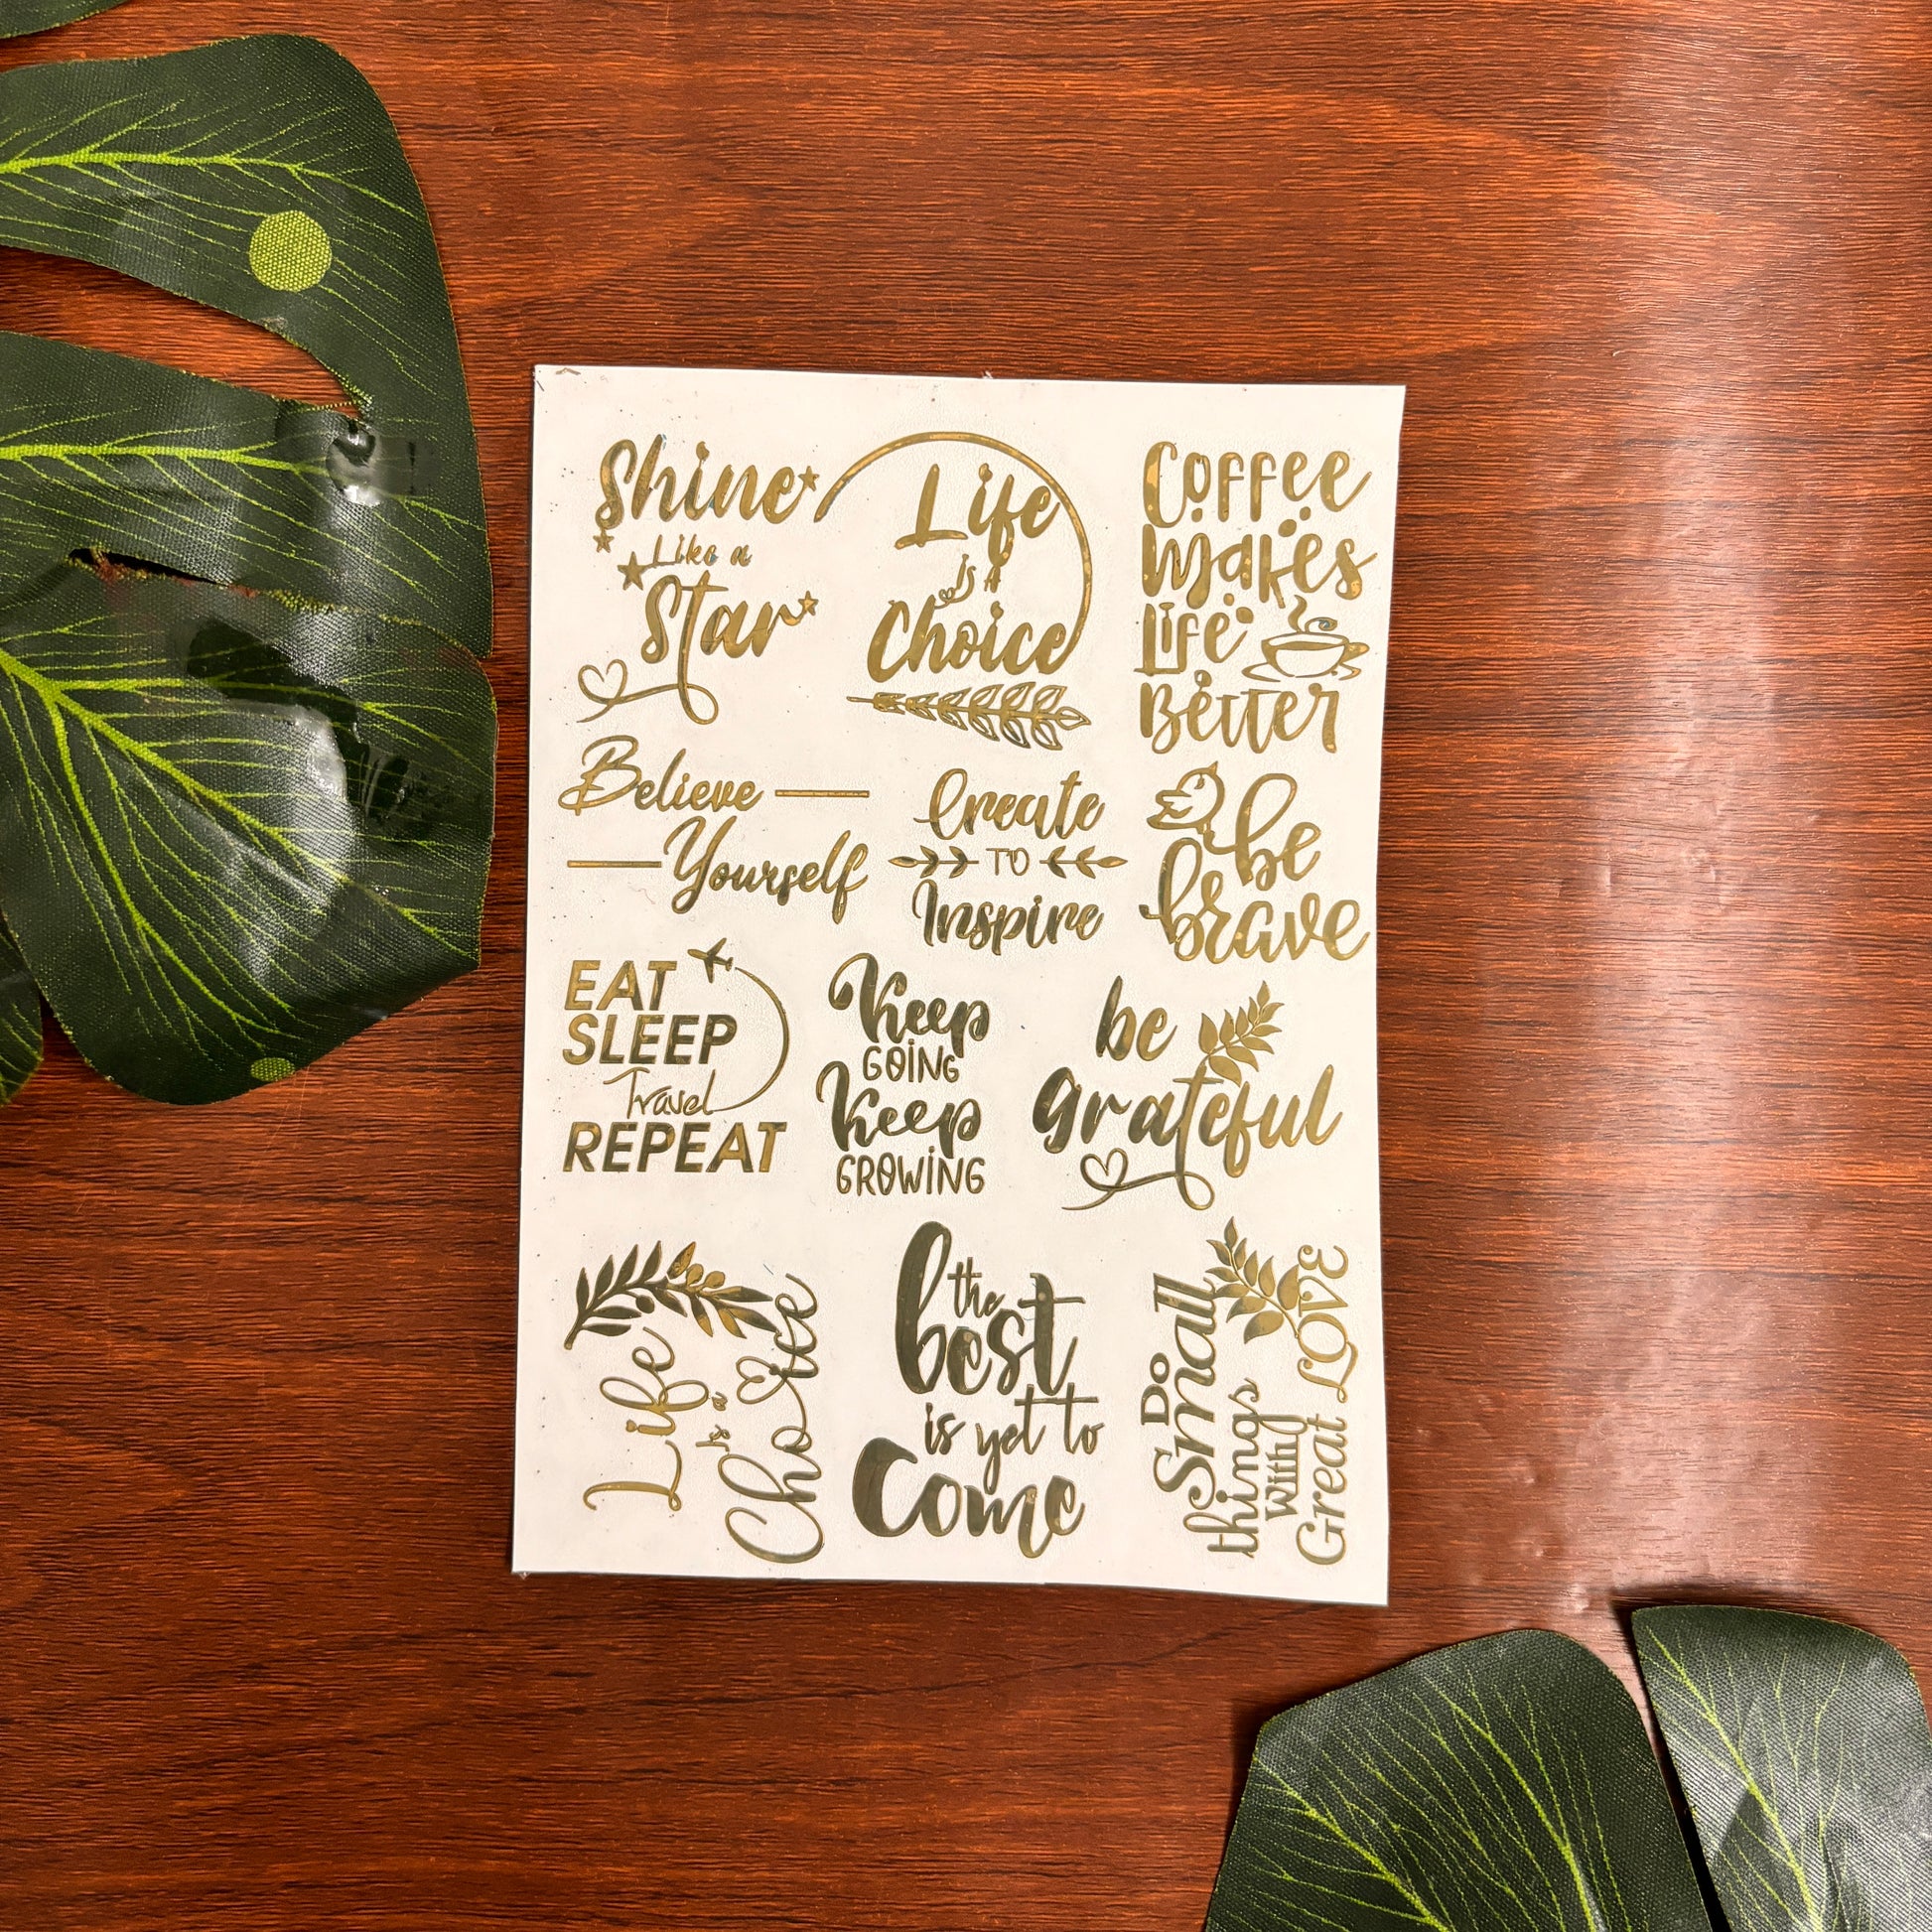 Shine
Like a
Star
Life
is A
Choice
Coffee
Makes
Life
Better
Believe
Yourself
Create
TO
Inspire
be
brave
EAT
SLEEP
Travel
REPEAT
Keep
GOING
Keep
GROWING
be
grateful
Life
is a
Choice
the
best
is yet to
come
Do
Small
things
With
Great LOVE